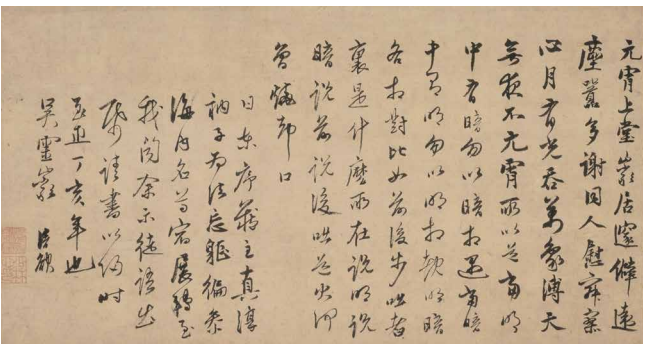 元宵上堂巖居邃僻遠
塵囂多謝同人慰寂寥
心月有光吞萬象溥天
無夜不元宵所以道當明
中有暗勿以暗相遇當暗
中有明勿以明相覩明暗
各相對比如前後步咄者
裏是什麼所在說明說
暗說前說後咄道火何
曾燒却口
日東序藏主真淳
衲子為法忘軀徧參
海內名尊宿展轉至
我閱余示徒語出
紙請書以歸時
至正丁亥年也
吳靈巖 清欲